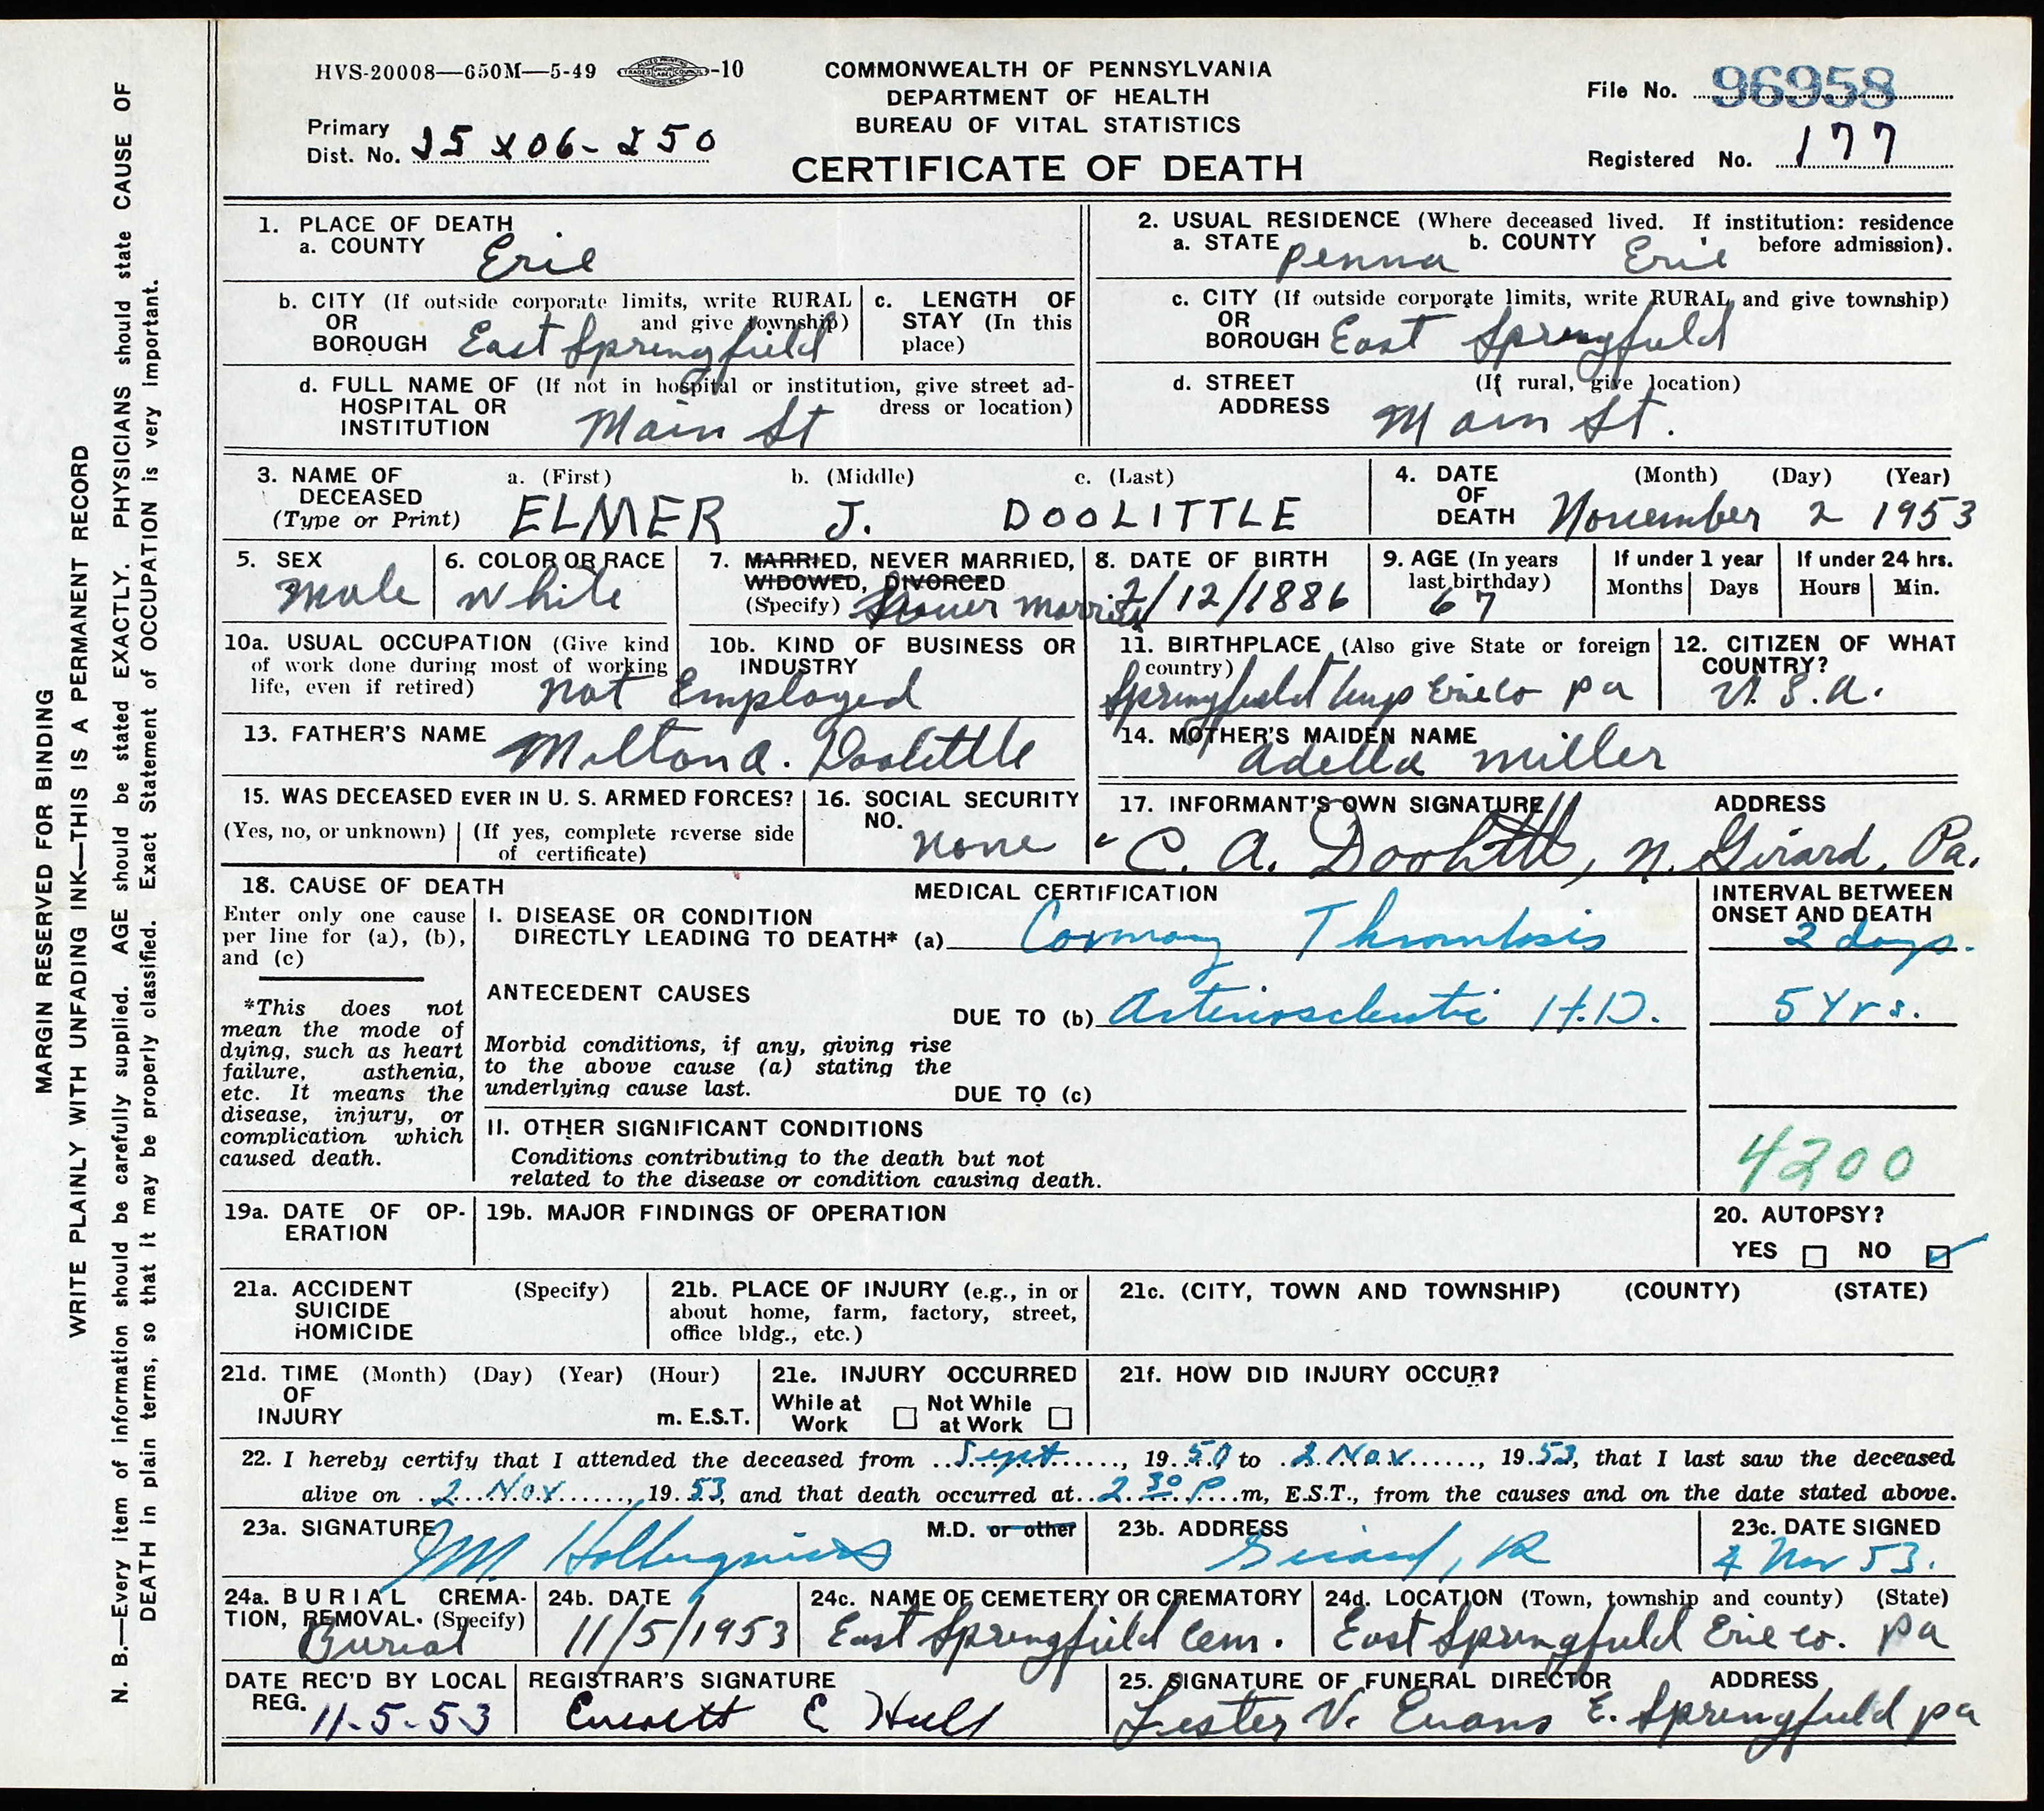 HVS-20008—650M—5-49 -10
COMMONWEALTH OF PENNSYLVANIA
DEPARTMENT OF HEALTH
BUREAU OF VITAL STATISTICS
CERTIFICATE OF DEATH
File No. 96958
Primary
Dist. No. 25 X 06 - 250
Registered No. 177
MARGIN RESERVED FOR BINDING
WRITE PLAINLY WITH UNFADING INK—THIS IS A PERMANENT RECORD
N. B.—Every item of information should be carefully supplied. AGE should be stated EXACTLY. PHYSICIANS should state CAUSE OF
DEATH in plain terms, so that it may be properly classified. Exact Statement of OCCUPATION is very important.
1. PLACE OF DEATH
a. COUNTY Erie
2. USUAL RESIDENCE (Where deceased lived. If institution: residence
before admission).
a. STATE Penna b. COUNTY Erie
b. CITY (If outside corporate limits, write RURAL
OR and give township)
BOROUGH East Springfield
c. LENGTH OF
STAY (In this
place)
c. CITY (If outside corporate limits, write RURAL and give township)
OR
BOROUGH East Springfield
d. FULL NAME OF (If not in hospital or institution, give street ad-
HOSPITAL OR dress or location)
INSTITUTION Main St
d. STREET (If rural, give location)
ADDRESS Main St.
3. NAME OF
DECEASED
(Type or Print)
a. (First) b. (Middle) c. (Last)
ELMER J. DOOLITTLE
4. DATE (Month) (Day) (Year)
OF
DEATH November 2 1953
5. SEX
Male
6. COLOR OR RACE
White
7. MARRIED, NEVER MARRIED,
WIDOWED, DIVORCED
(Specify) Never Married
8. DATE OF BIRTH
2/12/1886
9. AGE (In years
last birthday)
67
If under 1 year
Months Days
If under 24 hrs.
Hours Min.
10a. USUAL OCCUPATION (Give kind
of work done during most of working
life, even if retired)
10b. KIND OF BUSINESS OR
INDUSTRY
not Employed
11. BIRTHPLACE (Also give State or foreign
country)
Springfield twp Erie co Pa
12. CITIZEN OF WHAT
COUNTRY?
U.S.A.
13. FATHER'S NAME
Milton A. Doolittle
14. MOTHER'S MAIDEN NAME
Adella Miller
15. WAS DECEASED EVER IN U. S. ARMED FORCES?
(Yes, no, or unknown) (If yes, complete reverse side
of certificate)
16. SOCIAL SECURITY
NO.
None
17. INFORMANT'S OWN SIGNATURE ADDRESS
C. A. Doolittle, N. Girard, Pa.
18. CAUSE OF DEATH
Enter only one cause
per line for (a), (b),
and (c)
*This does not
mean the mode of
dying, such as heart
failure, asthenia,
etc. It means the
disease, injury, or
complication which
caused death.
MEDICAL CERTIFICATION
I. DISEASE OR CONDITION
DIRECTLY LEADING TO DEATH* (a) Coronary Thrombosis
ANTECEDENT CAUSES
DUE TO (b) Arteriosclerotic H.D.
Morbid conditions, if any, giving rise
to the above cause (a) stating the
underlying cause last.
DUE TO (c)
II. OTHER SIGNIFICANT CONDITIONS
Conditions contributing to the death but not
related to the disease or condition causing death.
INTERVAL BETWEEN
ONSET AND DEATH
2 days.
5 Yrs.
4200
19a. DATE OF OP-
ERATION
19b. MAJOR FINDINGS OF OPERATION
20. AUTOPSY?
YES NO
21a. ACCIDENT (Specify)
SUICIDE
HOMICIDE
21b. PLACE OF INJURY (e.g., in or
about home, farm, factory, street,
office bldg., etc.)
21c. (CITY, TOWN AND TOWNSHIP) (COUNTY) (STATE)
21d. TIME (Month) (Day) (Year) (Hour)
OF
INJURY m. E.S.T.
21e. INJURY OCCURRED
While at Not While
Work at Work
21f. HOW DID INJURY OCCUR?
22. I hereby certify that I attended the deceased from Sept, 1950 to 2 Nov, 1953, that I last saw the deceased
alive on 2 Nov, 1953, and that death occurred at 2 30 P m, E.S.T., from the causes and on the date stated above.
23a. SIGNATURE M.D. or other
23b. ADDRESS
Girard, Pa
23c. DATE SIGNED
4 Nov 53.
24a. BURIAL CREMA-
TION, REMOVAL. (Specify)
Burial
24b. DATE
11/5/1953
24c. NAME OF CEMETERY OR CREMATORY
East Springfield Cem.
24d. LOCATION (Town, township and county) (State)
East Springfield Erie co. Pa
DATE REC'D BY LOCAL
REG. 11-5-53
REGISTRAR'S SIGNATURE
Everett E Hull
25. SIGNATURE OF FUNERAL DIRECTOR ADDRESS
Lester V. Evans E. Springfield Pa